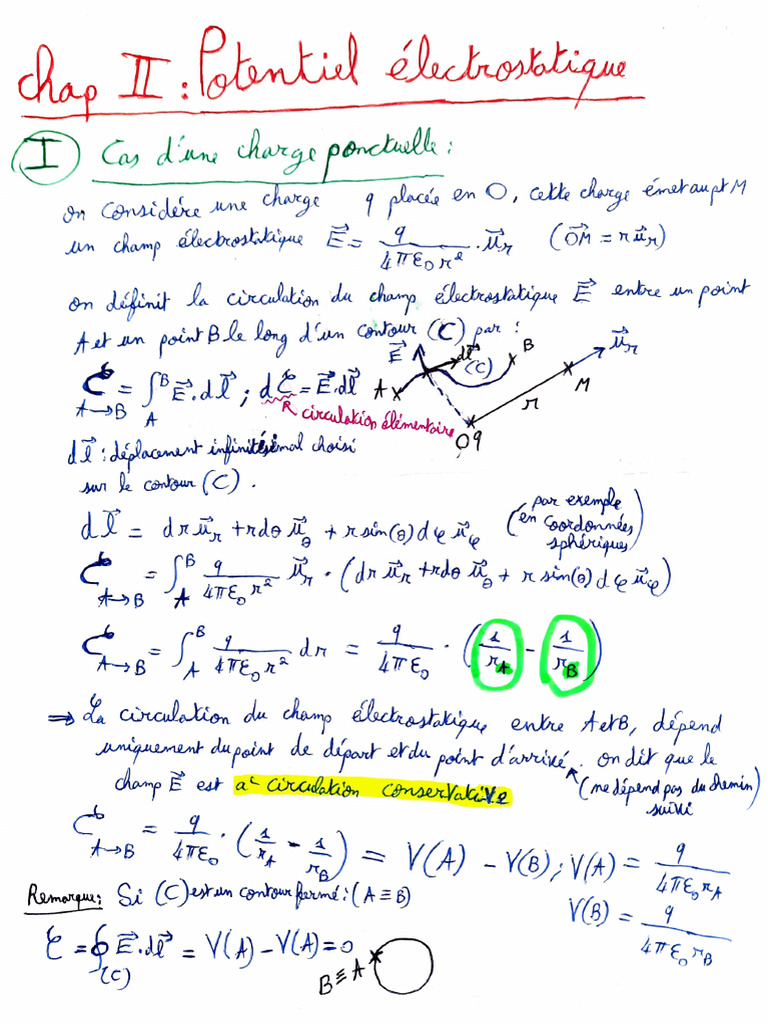 chap II : Potentiel électrostatique
I Cas d'une charge ponctuelle :
on considére une charge q placée en O, cette charge émet au pt M
un champ électrostatique E⃗ = q/(4πε₀r²) · u⃗r (OM⃗ = r u⃗r)
on définit la circulation du champ électrostatique E⃗ entre un point
A et un point B le long d'un contour (C) par :
𝒞 A→B = ∫_A^B E⃗ . dl⃗ ; d𝒞 = E⃗ . dl⃗
circulation élémentaire
E⃗ dl⃗ (C) A B u⃗r M r O q
dl⃗ : déplacement infinitésimal choisi
sur le contour (C) .
dl⃗ = dr u⃗r + rdθ u⃗θ + r sin(θ) dφ u⃗φ
(par exemple
en coordonnées
sphériques)
𝒞 A→B = ∫_A^B q/(4πε₀r²) u⃗r · (dr u⃗r + rdθ u⃗θ + r sin(θ) dφ u⃗φ)
𝒞 A→B = ∫_A^B q/(4πε₀r²) dr = q/(4πε₀) · (1/rA - 1/rB)
⇒ La circulation du champ électrostatique entre A et B, dépend
uniquement du point de départ et du point d'arrivé. on dit que le
champ E⃗ est a circulation conservative
(ne dépend pas du chemin
suivi)
𝒞 A→B = q/(4πε₀) · (1/rA - 1/rB) = V(A) - V(B) ; V(A) = q/(4πε₀rA)
V(B) = q/(4πε₀rB)
Remarque : Si (C) est un contour fermé : (A ≡ B)
𝒞 = ∮_(C) E⃗ . dl⃗ = V(A) - V(A) = 0
B ≡ A